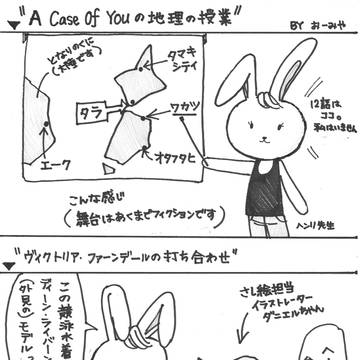 "A Case Of Youの地理の授業"
BY おーみや
となりのくに
(大陸です)
タマキ
シティ
タラ
ワカツ
エーク
オタフクヒ
12話は
ココ。
私はいません
こんな感じ
(舞台はあくまでフィクションです)
ヘンリ先生
"ヴィクトリア・ファーンデールの打ち合わせ"
この競泳水着
ディーン・ライバーン
(外見の)モデル
さし絵担当
イラストレーター
ダニエルちゃん